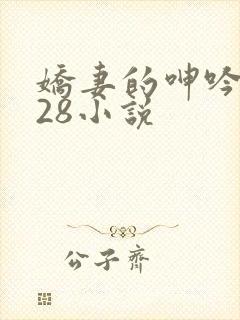 嬌妻的呻吟
28小說
公子齊